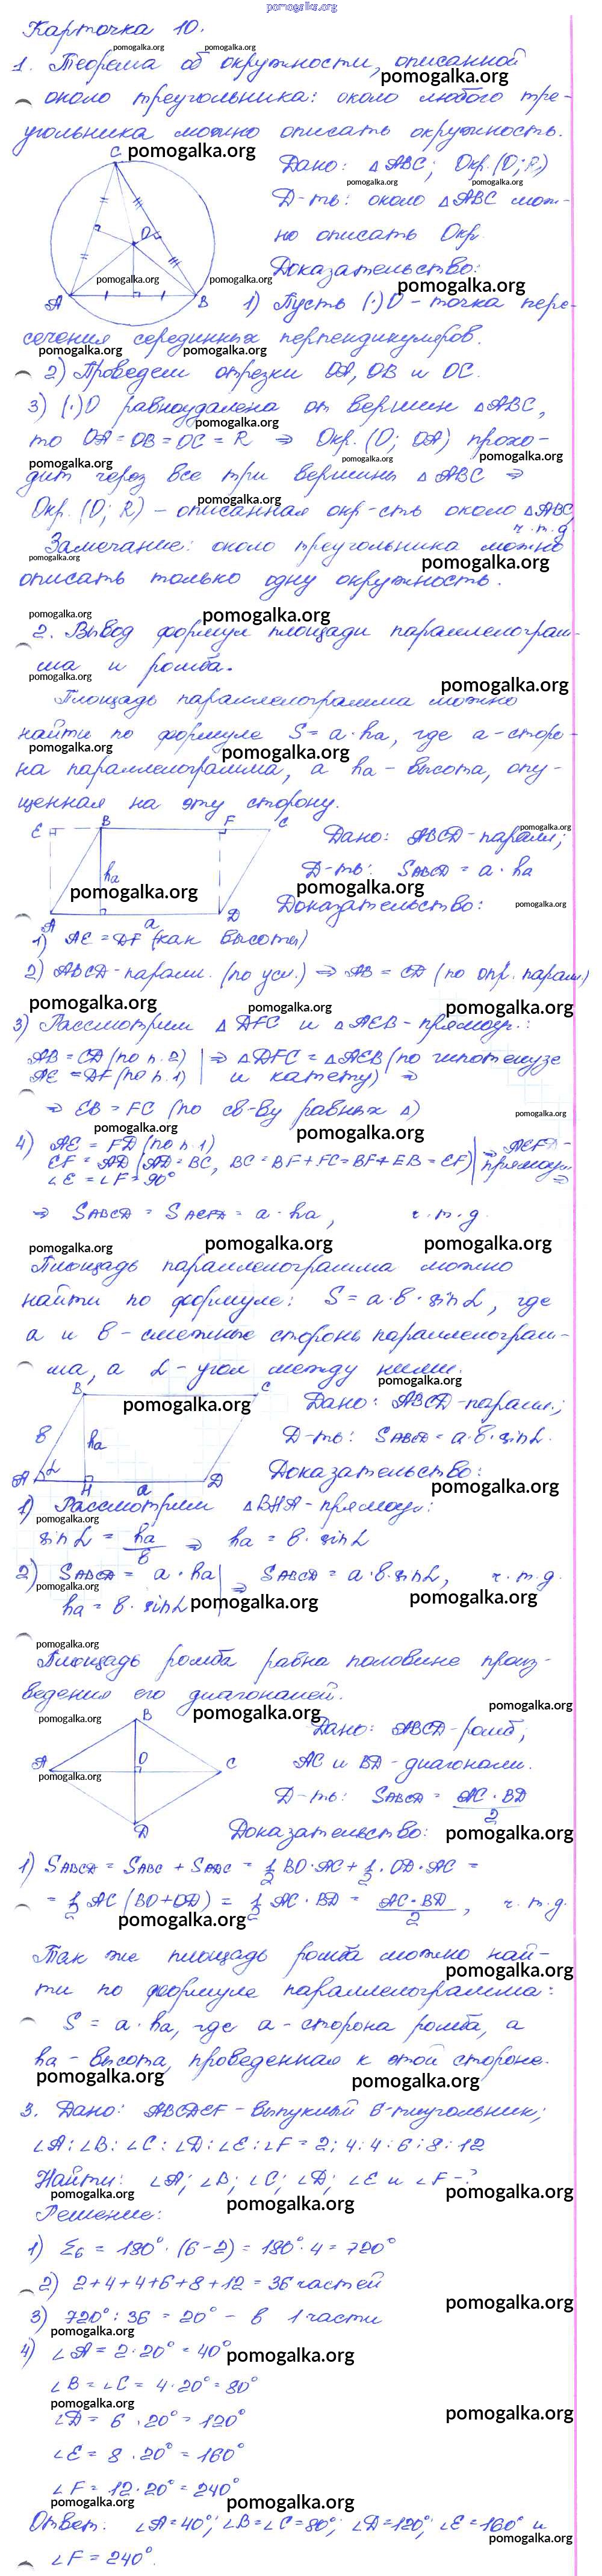 pomogalka.org
Карточка 10.
1. Теорема об окружности, описанной
около треугольника: около любого тре-
угольника можно описать окружность.
Дано: △ABC; Окр.(O;R)
Д-ть: около △ABC мож-
но описать Окр.
Доказательство:
C
O
A
B
1) Пусть (·)O - точка пере-
сечения серединных перпендикуляров.
2) Проведем отрезки OA, OB и OC.
3) (·)O равноудалена от вершин △ABC,
то OA = OB = OC = R ⇒ Окр. (O; OA) прохо-
дит через все три вершины △ABC ⇒
Окр. (O; R) - описанная окр-сть около △ABC
ч.т.д.
Замечание: около треугольника можно
описать только одну окружность.
2. Вывод формул площади параллелограм-
ма и ромба.
Площадь параллелограмма можно
найти по формуле S = a·ha, где a - сторо-
на параллелограмма, а ha - высота, опу-
щенная на эту сторону.
E B F C
ha
A a D
Дано: ABCD - парал.;
Д-ть: SABCD = a·ha
Доказательство:
1) AE = DF (как высоты)
2) ABCD - парал. (по усл.) ⇒ AB = CD (по опр. парал.)
3) Рассмотрим △DFC и △AEB - прямоуг.:
AB = CD (по п. 2) | ⇒ △DFC = △AEB (по гипотенузе
AE = DF (по п. 1) | и катету) ⇒
⇒ EB = FC (по св-ву равных △)
4) AE = FD (по п. 1)
EF = AD (AD = BC, BC = BF + FC = BF + EB = EF) | ⇒ AEFD -
∠E = ∠F = 90° прямоуг. ⇒
⇒ SABCD = SAEFD = a·ha, ч.т.д.
Площадь параллелограмма можно
найти по формуле: S = a·b·sin α, где
a и b - смежные стороны параллелограм-
ма, а α - угол между ними.
B C
b ha
A α H a D
Дано: ABCD - парал.;
Д-ть: SABCD = a·b·sin α.
Доказательство:
1) Рассмотрим △BHA - прямоуг.:
sin α = ha/b ⇒ ha = b·sin α
2) SABCD = a·ha | ⇒ SABCD = a·b·sin α, ч.т.д.
ha = b·sin α
Площадь ромба равна половине произ-
ведения его диагоналей.
B
A O C
D
Дано: ABCD - ромб;
AC и BD - диагонали.
Д-ть: SABCD = AC·BD/2
Доказательство:
1) SABCD = SABC + SADC = 1/2 BO·AC + 1/2·OD·AC =
= 1/2 AC (BO + OD) = 1/2 AC·BD = AC·BD/2, ч.т.д.
Так же площадь ромба можно най-
ти по формуле параллелограмма:
S = a·ha, где a - сторона ромба, а
ha - высота, проведенная к этой стороне.
3. Дано: ABCDEF - выпуклый 6-тиугольник;
∠A:∠B:∠C:∠D:∠E:∠F = 2:4:4:6:8:12
Найти: ∠A; ∠B; ∠C; ∠D; ∠E и ∠F - ?
Решение:
1) Σ6 = 180°·(6-2) = 180°·4 = 720°
2) 2+4+4+6+8+12 = 36 частей
3) 720° : 36 = 20° - в 1 части
4) ∠A = 2·20° = 40°
∠B = ∠C = 4·20° = 80°
∠D = 6·20° = 120°
∠E = 8·20° = 160°
∠F = 12·20° = 240°
Ответ: ∠A = 40°; ∠B = ∠C = 80°; ∠D = 120°; ∠E = 160° и
∠F = 240°.